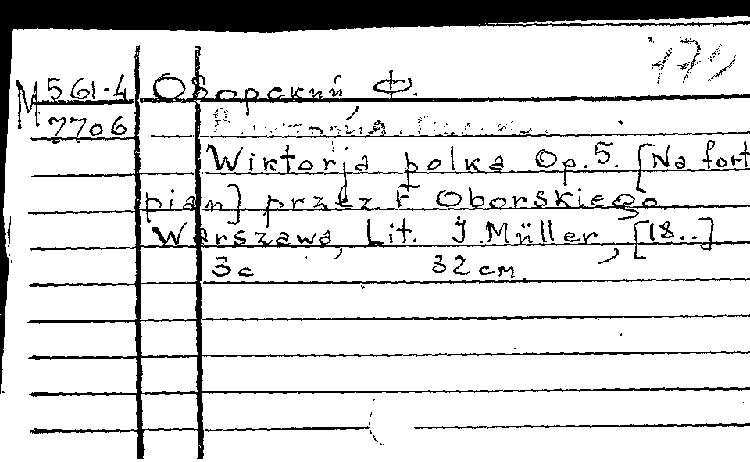 М 561-4 Оборский, Ф.
7706
Wiktorja polka Op. 5. [Na fort
pian] przez F. Oborskiego
Warszawa, Lit. J. Müller, [18..]
3 с 32 см.